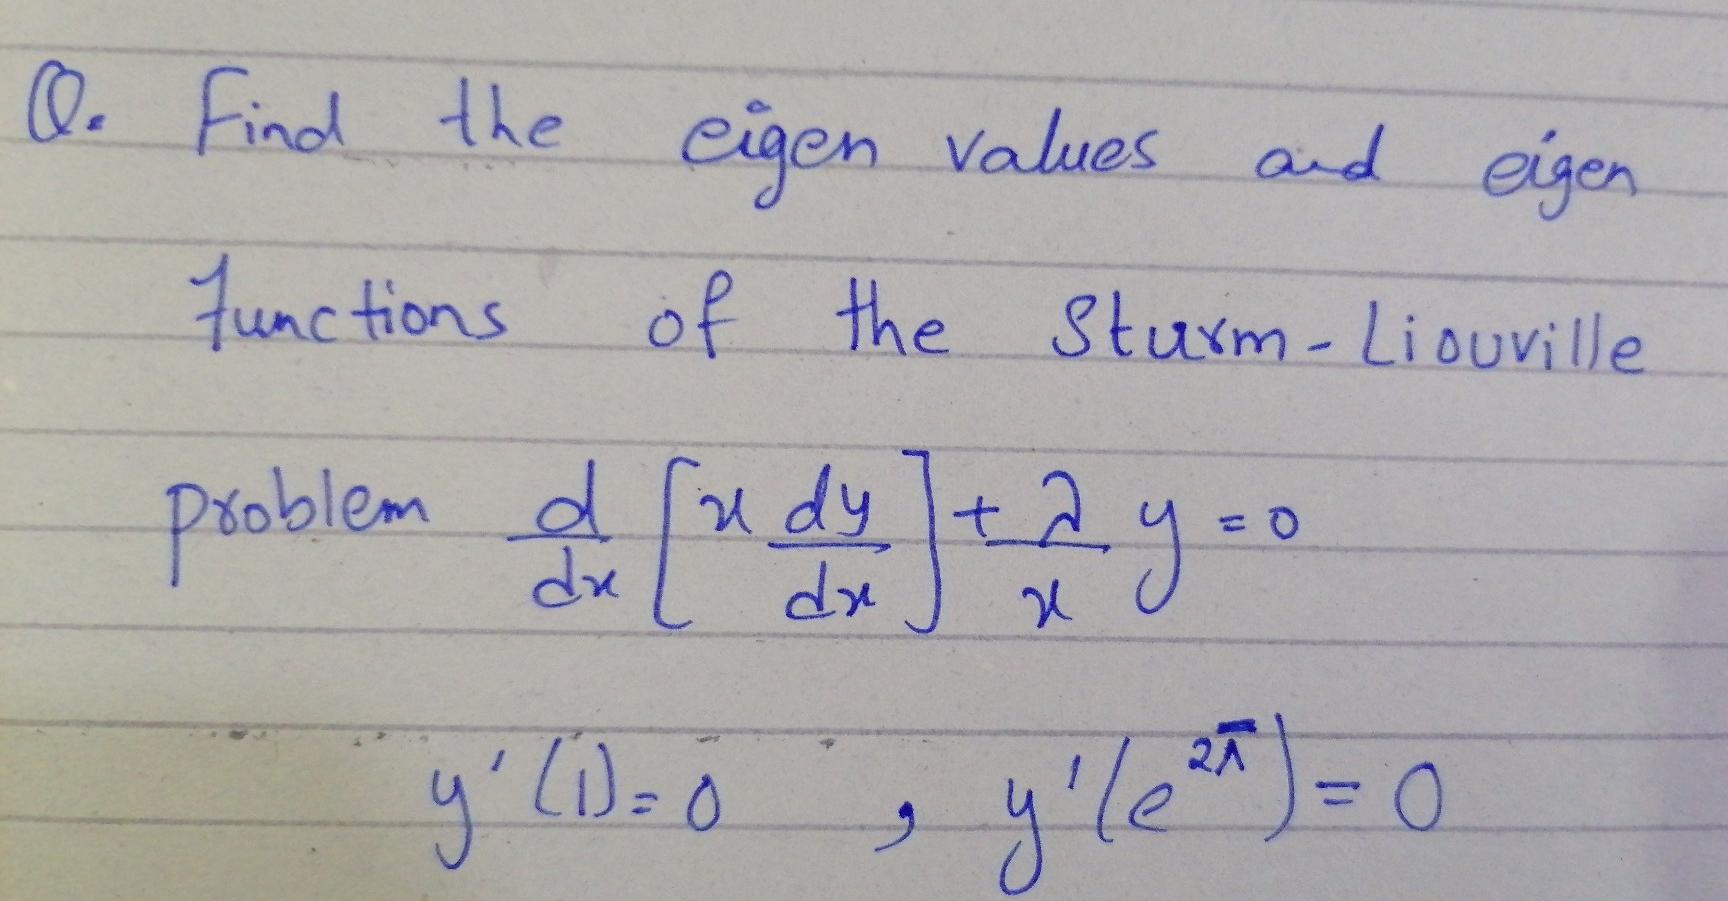 Q. Find the eigen values and eigen
functions of the Sturm-Liouville
problem d/dx [x dy/dx] + λ/x y = 0
y'(1) = 0 , y'(e^{2π}) = 0